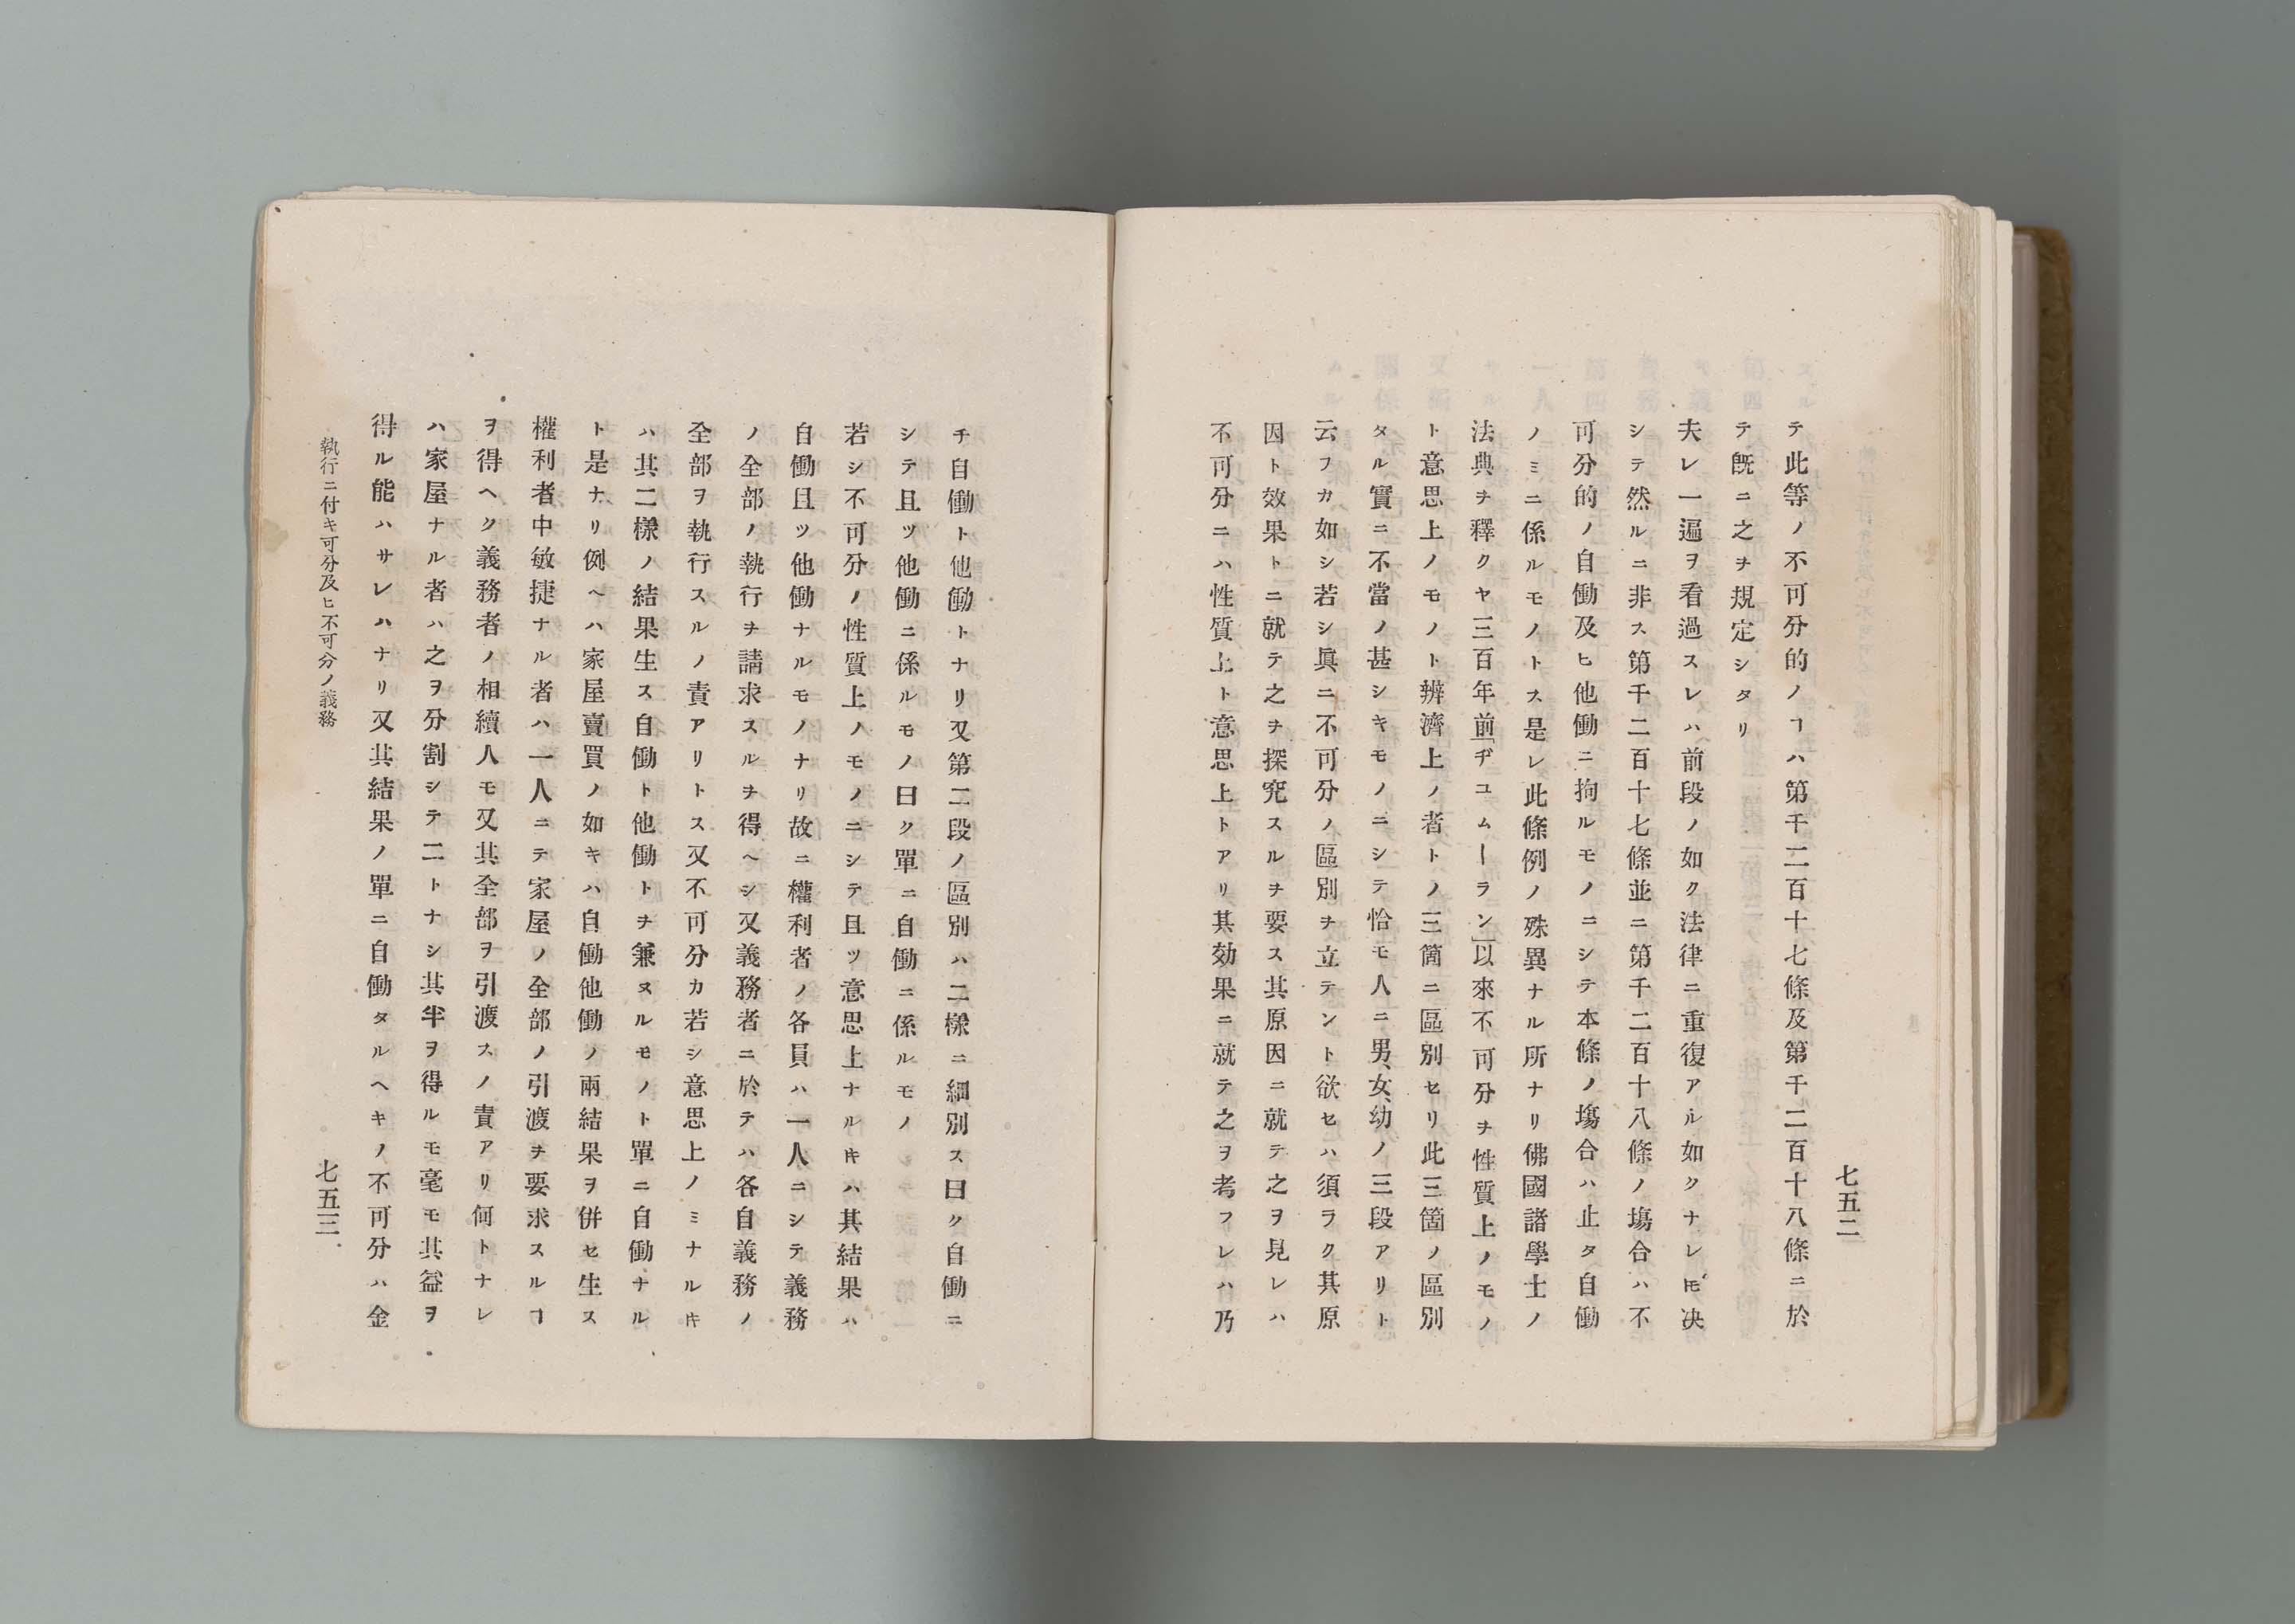 七五二
テ此等ノ不可分的ノヿハ第千二百十七條及第千二百十八條ニ於
テ既ニ之ヲ規定シタリ
夫レ一遍ヲ看過スレハ前段ノ如ク法律ニ重復アル如クナレ𪜈決
シテ然ルニ非ス第千二百十七條並ニ第千二百十八條ノ塲合ハ不
可分的ノ自働及ヒ他働ニ拘ルモノニシテ本條ノ塲合ハ止タ自働
ノミニ係ルモノトス是レ此條例ノ殊異ナル所ナリ佛國諸學士ノ
法典ヲ釋クヤ三百年前「ヂユムーラン」以來不可分ヲ性質上ノモノ
ト意思上ノモノト辨濟上ノ者トノ三箇ニ區別セリ此三箇ノ區別
タル實ニ不當ノ甚シキモノニシテ恰モ人ニ男、女、幼ノ三段アリト
云フカ如シ若シ眞ニ不可分ノ區別ヲ立テント欲セハ須ラク其原
因ト效果トニ就テ之ヲ探究スルヲ要ス其原因ニ就テ之ヲ見レハ
不可分ニハ性質上ト意思上トアリ其効果ニ就テ之ヲ考フレハ乃
チ自働ト他働トナリ又第二段ノ區別ハ二樣ニ細別ス曰ク自働ニ
シテ且ツ他働ニ係ルモノ曰ク單ニ自働ニ係ルモノ
若シ不可分ノ性質上ノモノニシテ且ツ意思上ナルキハ其結果ハ
自働且ツ他働ナルモノナリ故ニ權利者ノ各員ハ一人ニシテ義務
ノ全部ノ執行ヲ請求スルヲ得ヘシ又義務者ニ於テハ各自義務ノ
全部ヲ執行スルノ責アリトス又不可分カ若シ意思上ノミナルキ
ハ其二樣ノ結果生ス自働ト他働トヲ兼ヌルモノト單ニ自働ナル
ト是ナリ例ヘハ家屋賣買ノ如キハ自働他働ノ兩結果ヲ併セ生ス
權利者中敏捷ナル者ハ一人ニテ家屋ノ全部ノ引渡ヲ要求スルヿ
ヲ得ヘク義務者ノ相續人モ又其全部ヲ引渡スノ責アリ何トナレ
ハ家屋ナル者ハ之ヲ分割シテ二トナシ其半ヲ得ルモ毫モ其益ヲ
得ル能ハサレハナリ又其結果ノ單ニ自働タルヘキノ不可分ハ金
執行ニ付キ可分及ヒ不可分ノ義務
七五三